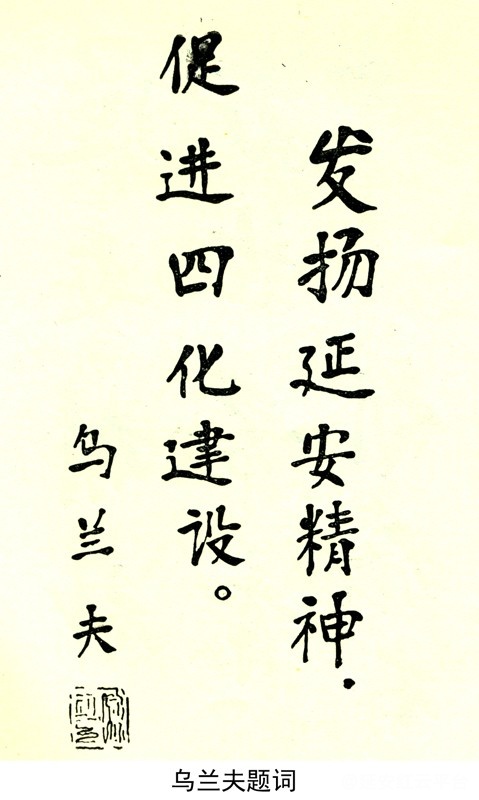 发扬延安精神，
促进四化建设。
乌兰夫
乌兰夫题词